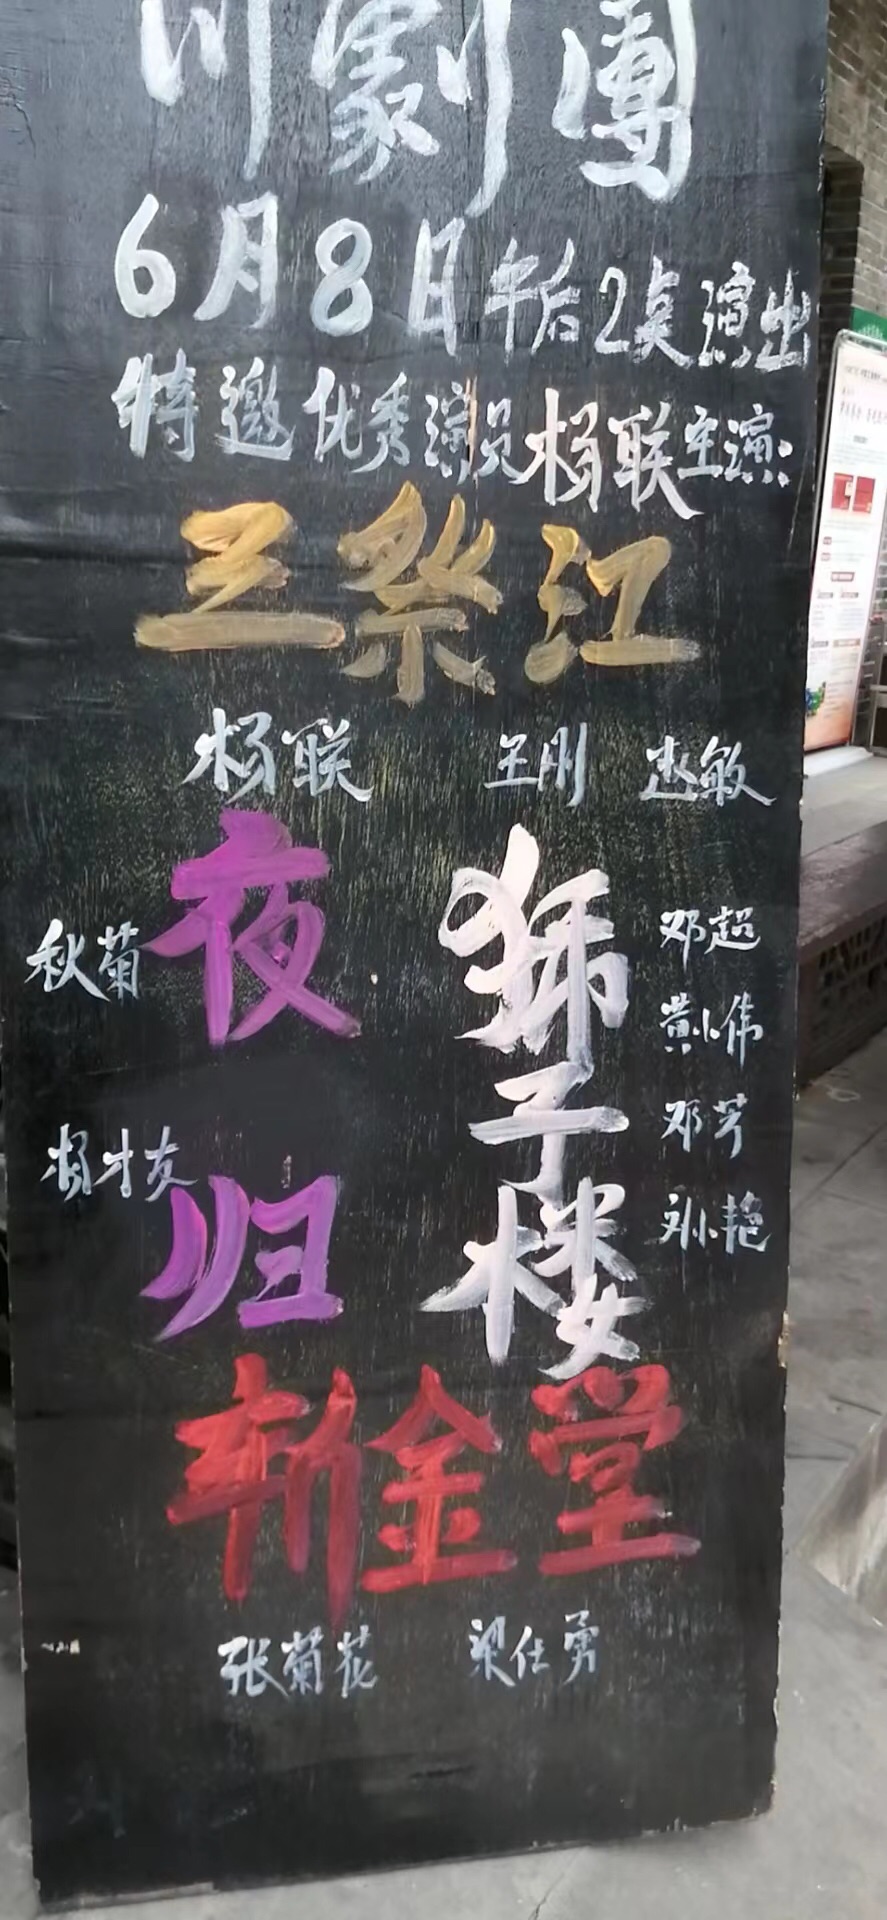 川劇團
6月8日午后2点演出
特邀优秀演员杨联主演:
三祭江
杨联 王刚 赵敏
夜归
秋菊
杨才友
狮子楼
邓超
黄小伟
邓芳
刘小艳
斩金堂
张菊花 梁仕勇